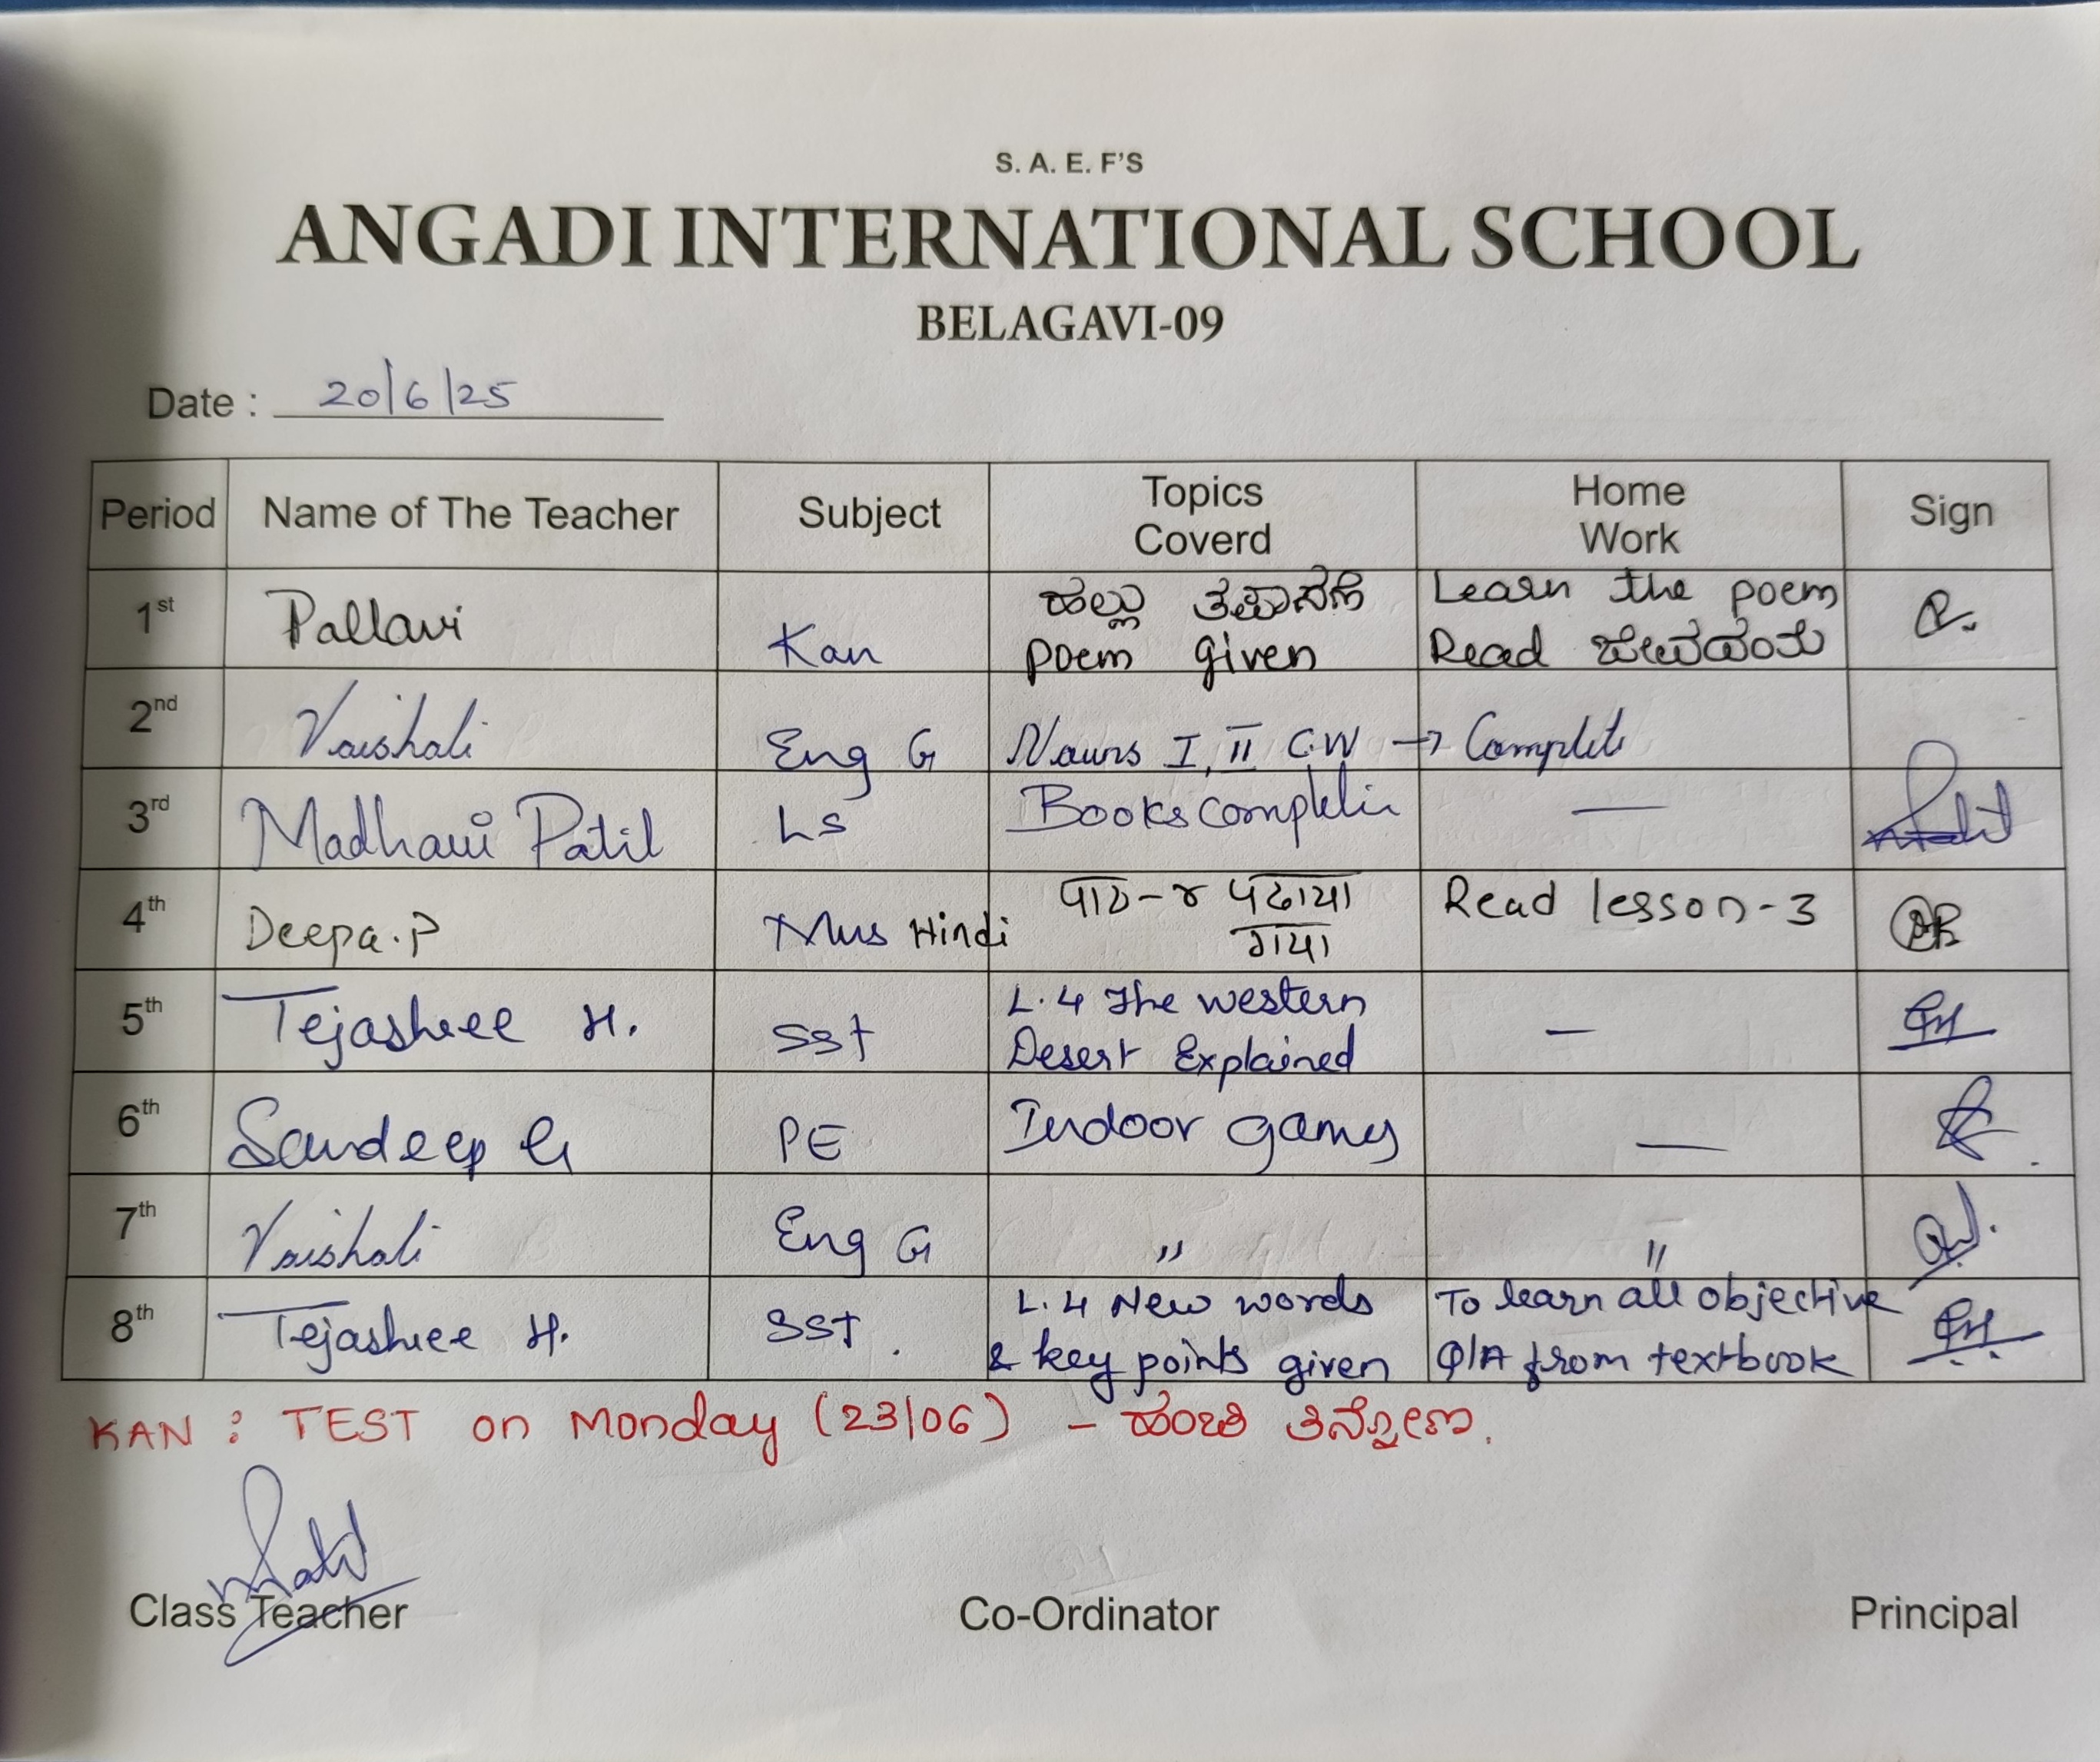 S. A. E. F'S
ANGADI INTERNATIONAL SCHOOL
BELAGAVI-09
Date : 20/6/25
Period Name of The Teacher Subject Topics Coverd Home Work Sign
1st Pallavi Kan ಹಲ್ಲು ತಪಾಸಣೆ Learn the poem
poem given Read
2nd Vaishali Eng G Nouns I, II C.W → Complete
3rd Madhavi Patil LS Books —
4th Deepa.P Mus Hindi पाठ-४ पढाया Read lesson-3
गया
5th Tejashree H. SST L.4 The western —
Desert Explained
6th Sandeep G PE Indoor games —
7th Vaishali Eng G " "
8th Tejashree H. SST. L.4 New words To learn all objective
& key points given Q/A from textbook
KAN : TEST on Monday (23/06) - ಹಂಚಿ ತಿನ್ನೋಣ.
Class Teacher Co-Ordinator Principal